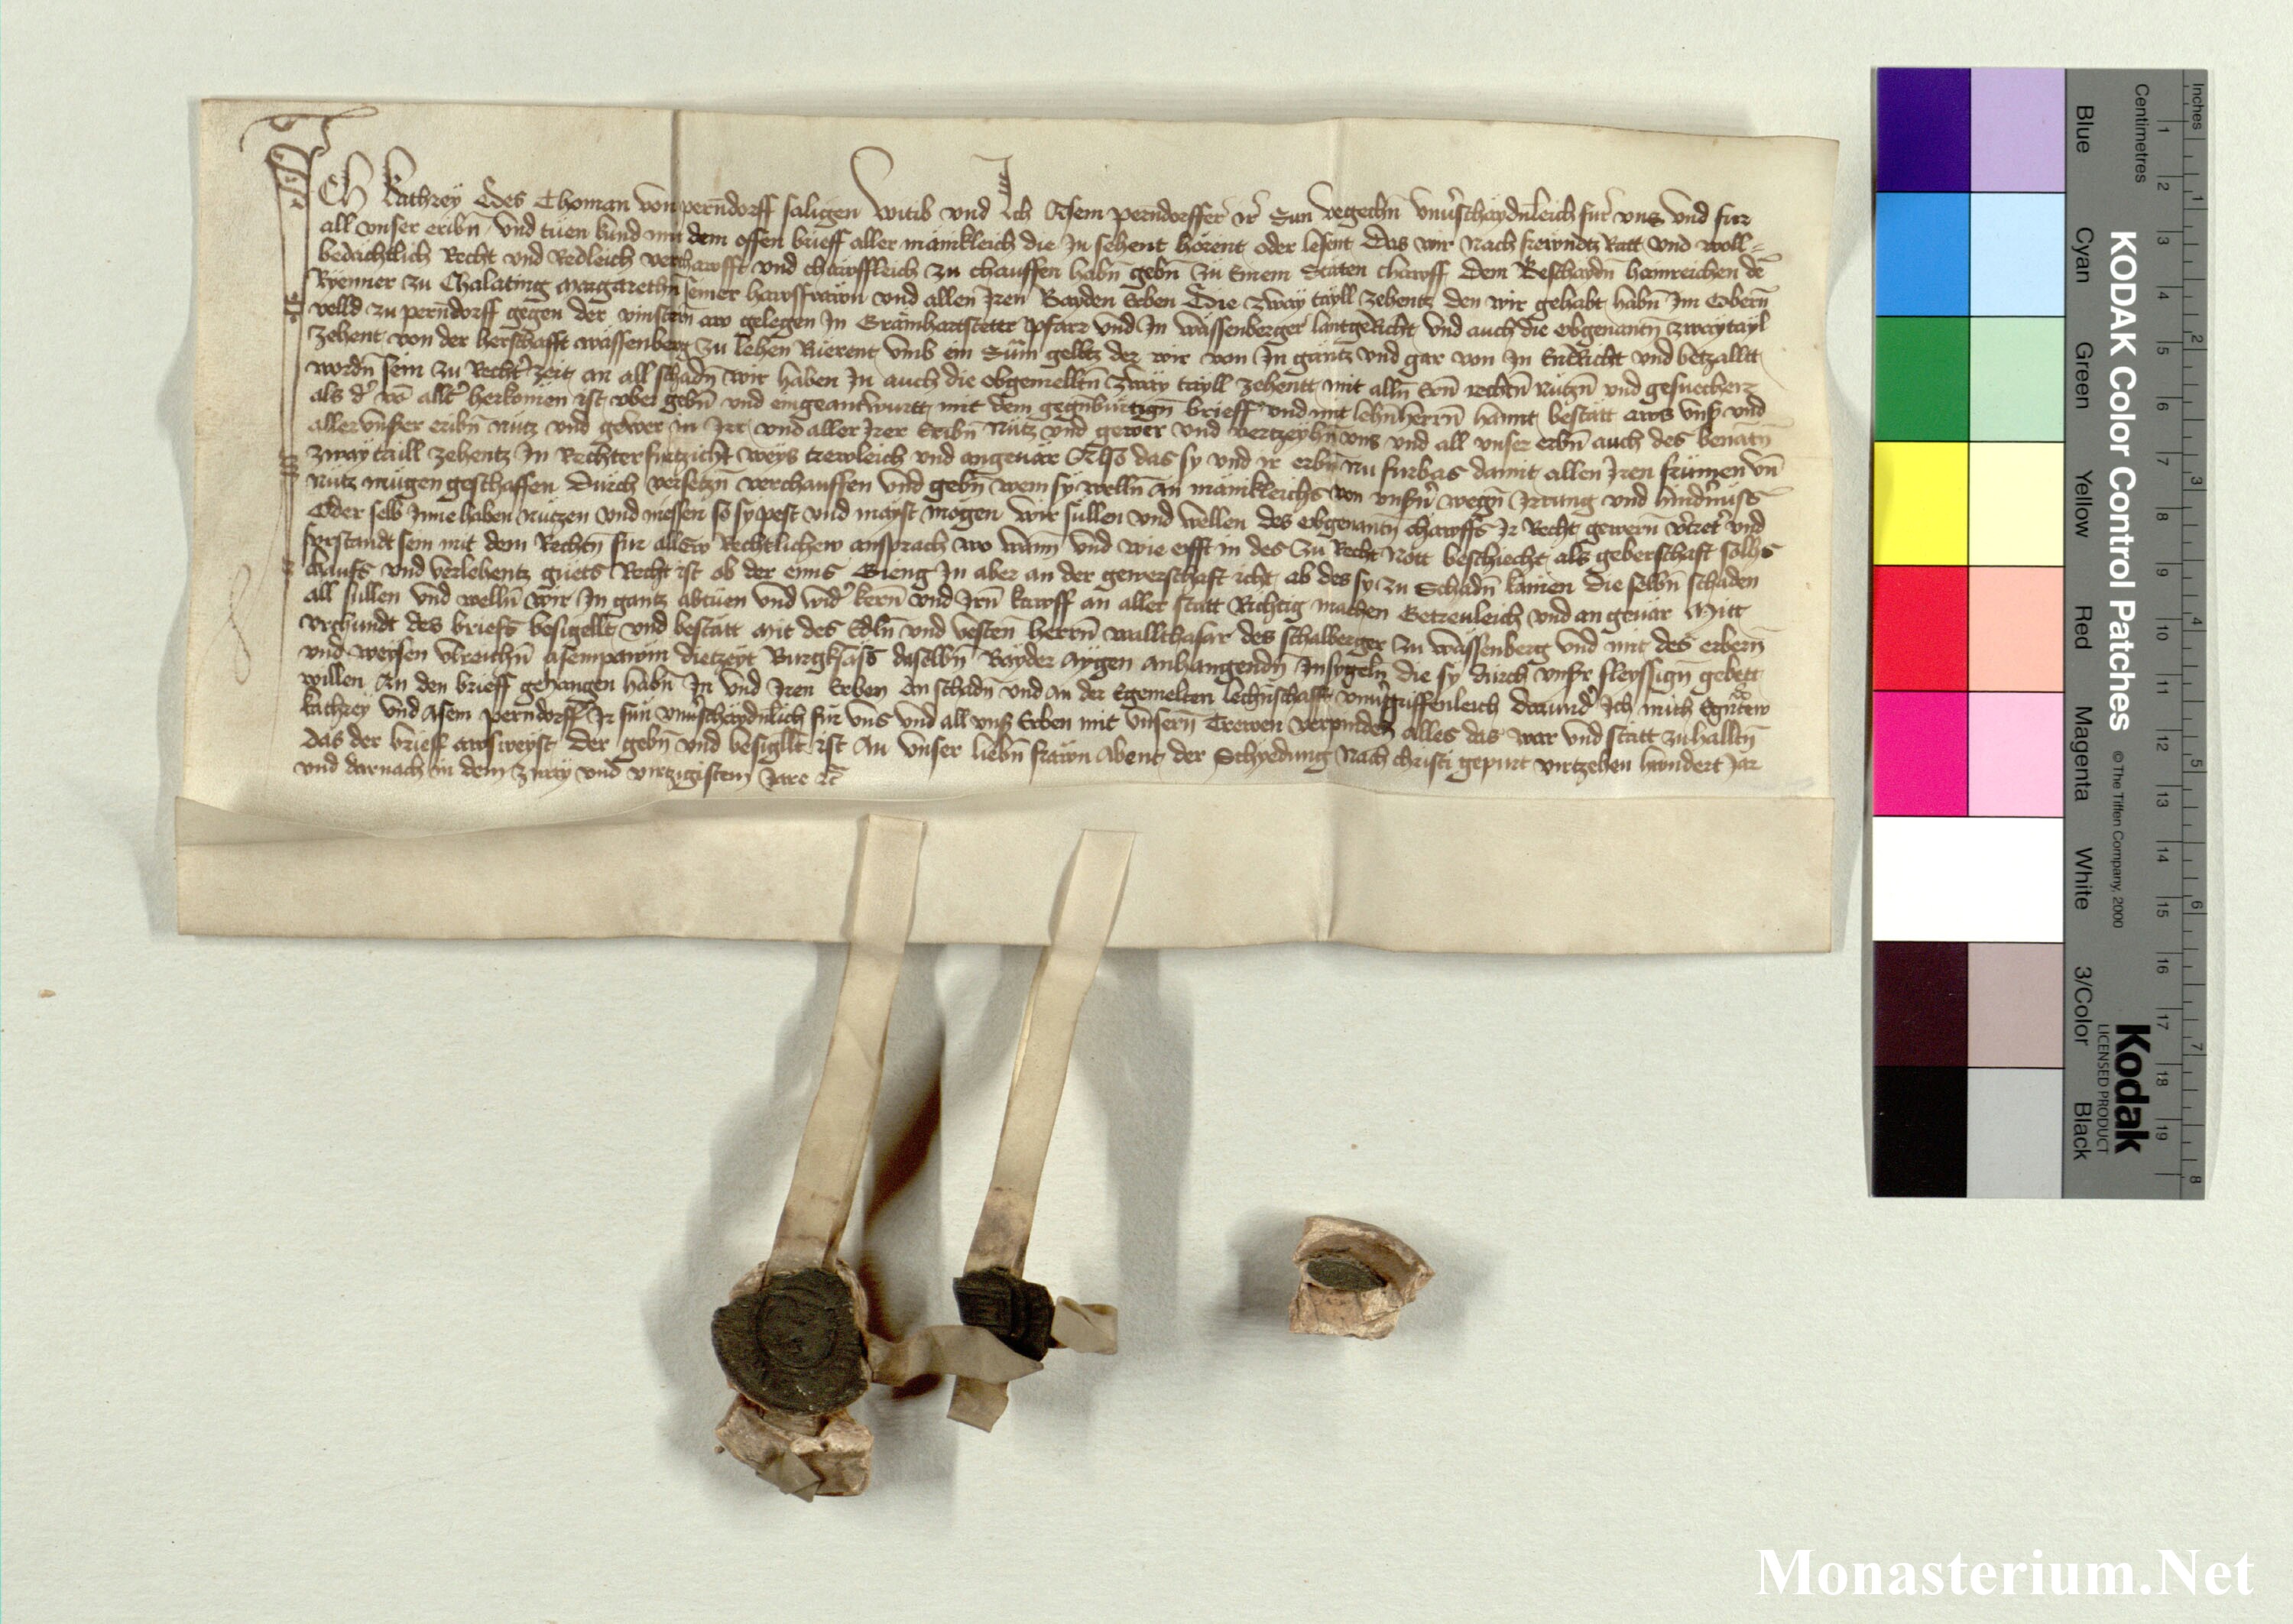 Ich kathrey Des Thoman von perndorff saligen witib und Ich Asem perndorffer ir Sun vegechn unverschaydnleich fur uns und fur
all unser eribn und tuen kund mit dem offen brieff aller mänikleich die In sehent hörent oder lesent Das wir nach frewndtz Ratt und woll=
bedächtlich Recht und Redleich verchawfft und chawffleich zu chauffen habn gebn zu Einem Stäten chawff dem Beschaydn hainreichen dē
Ryemer zu Chalating margarethn seiner hawsfrawn und allen Iren Bayden Erben Die zway tayll zehentz den wir gehabt habn Im Obern
velld zu perndorff gegen der vinstern aw gelegen In Gramhartstetter pfarr und In wässenberger lantgericht und auch die obgenantn zway tayl
zehent von der herschafft wässenberg zu lehen Rüerent umb ein Sum gelltz der wir von In gäntz und gar von In Entricht und betzalltt
wordn sein zu Rechtr zeit an all schadn wir haben In auch die obgemelltn zway tayll zehentt mit alln Ern rechtn nutzn und gesuechern
als dr vō alltr herkömen ist uber gebn und eingeantwurtt mit dem gegnburtign brieff und mit lehnherrn hannt bestätt aws unsr und
aller unser eribn nütz und gewer in Irr und aller Irer Eribn nütz und gewer und vertzeyhn uns und all unser erbn auch des benātn
zway taill zehentz In Rechter furtzicht weys trewleich und angeuär Also das sy und ir erbn nu furbas damit allen Iren frümen vn̄
nütz mügen geschaffen Durch versetzn verchauffen und gebn wem sy welln an mänikleichs von unsrn wegn Irrung und hindrnuss
Oder selb Inne haben nützen und niessen so sy pest und mayst mogen wir süllen und wellen des obgenantn chawffs Ir Recht gewern vtretr und
furstandt sein mit dem Rechtn fur allew Rechtlichew ansprach wo wann und wie offt in des zu Recht Nott beschiecht als geberschaft sollhs
kaufs und verlehentz guets Recht ist ob der eins Gieng In aber an der gewerschaft icht ab des sy zu Schadn kämen Die selbn schaden
all sullen und welln wir In gantz abtuen und widr kern und Irn kawff an aller statt Richtig machen Getreuleich und an geuär Mitt
urchundt des briefs besigellt und bestätt mit des Edln und vesten herrn wallthasar des schalberger zu wässenberg und mit des erbern
und weysen Ulreichn asempawm dietzeyt Burgksäss daselbn Bayder aygen anhangendn Insygeln die sy durch unsr fleyssign gebett
willen An den brieff gehangen habn In und Iren Erben an schadn und an der Egemelten lechnschafft unvrgriffenleich darundr Ich mich Egntew
kathrey und Asem perndorffr Ir sun unverschaydnlich fur uns und all unsr Erben mit unsern Trewen verpinden alles das war und statt zuhalltn
das der brieff awsweyst Der gebn und besigllt ist An Unser liebn frawn Abent der Schyedung Nach christi gepurt virtzehen hundert Jar
und darnach in dem zway und virtzigistem Jare etc̄
Inches
Centimetres
KODAK Color Control Patches © The Tiffen Company, 2000
Kodak
LICENSED PRODUCT
Blue Cyan Green Yellow Red Magenta White 3/Color Black
1 2 3 4 5 6 7 8 9 10 11 12 13 14 15 16 17 18 19
1 2 3 4 5 6 7 8
Monasterium.Net